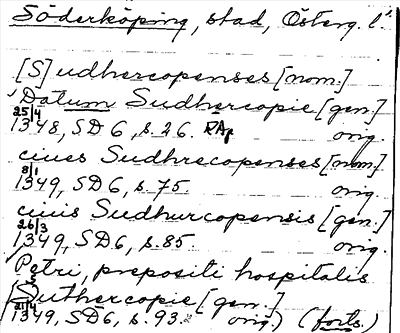 Söderköping, stad, Österg. l.
[S]udhercopenses [nom.]
Datum Sudhercopie [gen.]
25/4 1348, SD 6, s. 26. RAp orig.
ciues Sudhrecopenses [nom.]
8/1 1349, SD 6, s. 75. orig.
ciuis Sudhurcopensis [gen.]
26/3 1349, SD 6, s. 85. orig.
Petri, prepositi hospitalis
Suthercopie [gen.]
21/4 1349, SD 6, s. 93. orig.) (forts.)